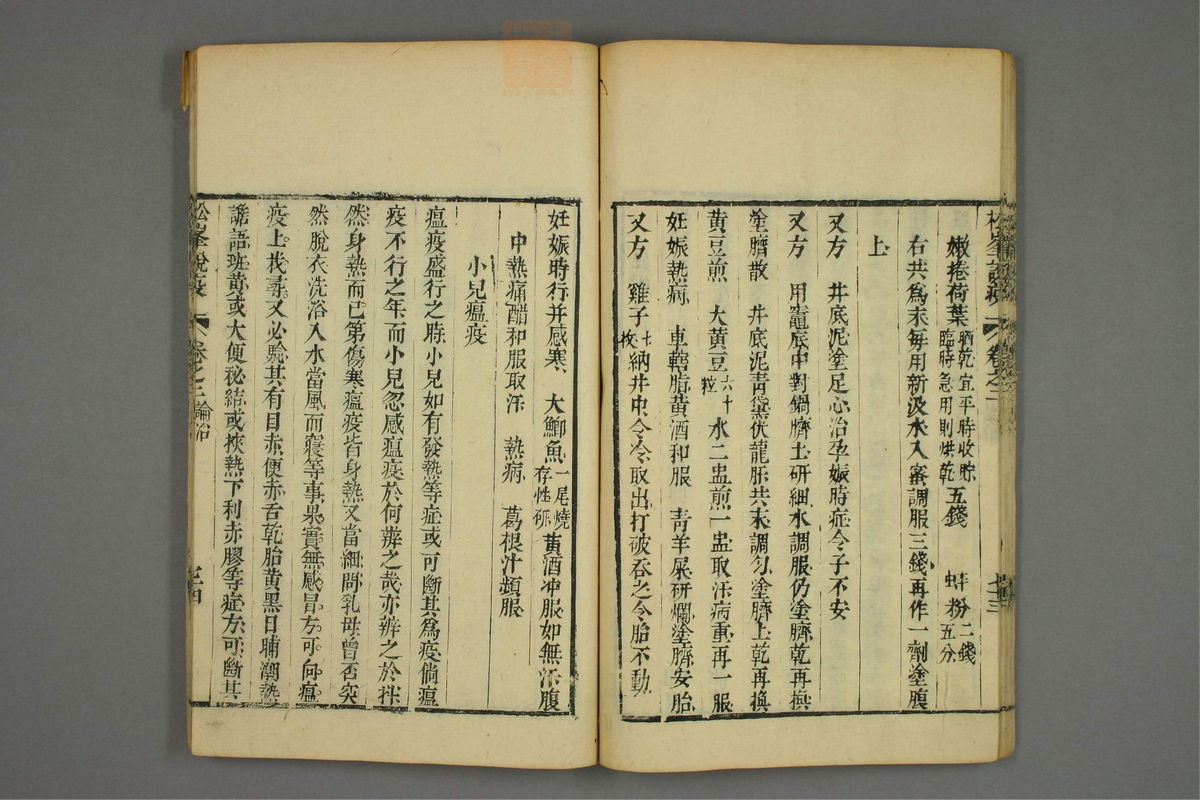 松峯說疫 卷之二
嫩捲荷葉晒乾宜平時收貯臨時急用則烘乾五錢 蚌粉二錢五分
右共爲末每用新汲水入蜜調服三錢再作一劑塗腹
上
又方 井底泥塗足心治孕娠時症令子不安
又方 用竈底中對鍋臍土研細水調服仍塗臍乾再換
塗臍散 井底泥青黛伏龍肝共末調勻塗臍上乾再換
黃豆煎 大黃豆六十粒水二盅煎一盅取汗病重再一服
妊娠熱病 車轄脂黃酒和服 青羊屎研爛塗臍安胎
又方 雞子七枚納井中令冷取出打破吞之令胎不動
妊娠時行并感寒 大鯽魚一尾燒存性研黃酒冲服如無汗腹
中熱痛醋和服取汗 熱病 葛根汁頻服
小兒瘟疫
瘟疫盛行之時小兒如有發熱等症或可斷其爲疫倘瘟
疫不行之年而小兒忽感瘟疾於何辨之哉亦辨之於抖
然身熱而已第傷寒瘟疫皆身熱又當細問乳母曾否突
然脫衣洗浴入水當風而寢等事果實無感冒方可向瘟
疫上找尋又必驗其有目赤便赤舌乾胎黃黑日晡潮熱
譫語斑黃或大便秘結或挾熱下利赤膠等症方可斷其
松峯說疫 卷之二論治